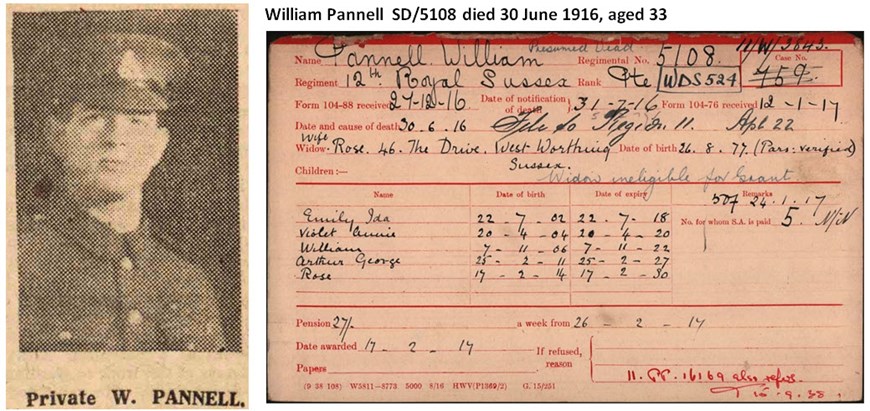 William Pannell SD/5108 died 30 June 1916, aged 33
Private W. PANNELL.
Presumed Dead
Name Pannell William Regimental No. 5108. 11/W/3643. Case No. 759
Regiment 12th Royal Sussex Rank Pte WDS524
Form 104-88 received 27-12-16 Date of notification of death 31-7-16 Form 104-76 received 12-1-17
Date and cause of death 30.6.16
Wife
Widow. Rose. 46. The Drive. West Worthing Date of birth 26.8.77. (Pars: verified)
Sussex.
Children:—
Widow ineligible for Grant
Name Date of birth Date of expiry Remarks
24.1.17
Emily Ida 22-7-02 22.7-18
No. for whom S.A. is paid 5.
Violet Annie 20-4-04 20-4-20
William 7-11-06 7-11-22
Arthur George 25-2-11 25-2-27
Rose 17-2-14 17-2-30
Pension 27/- a week from 26-2-17
Date awarded 17-2-17 If refused, reason
Papers
11. PP. 16169 also refers.
15.9.38.
(9 38 108) W5811—8773 5000 8/16 HWV(P1369/2) G. 15/251